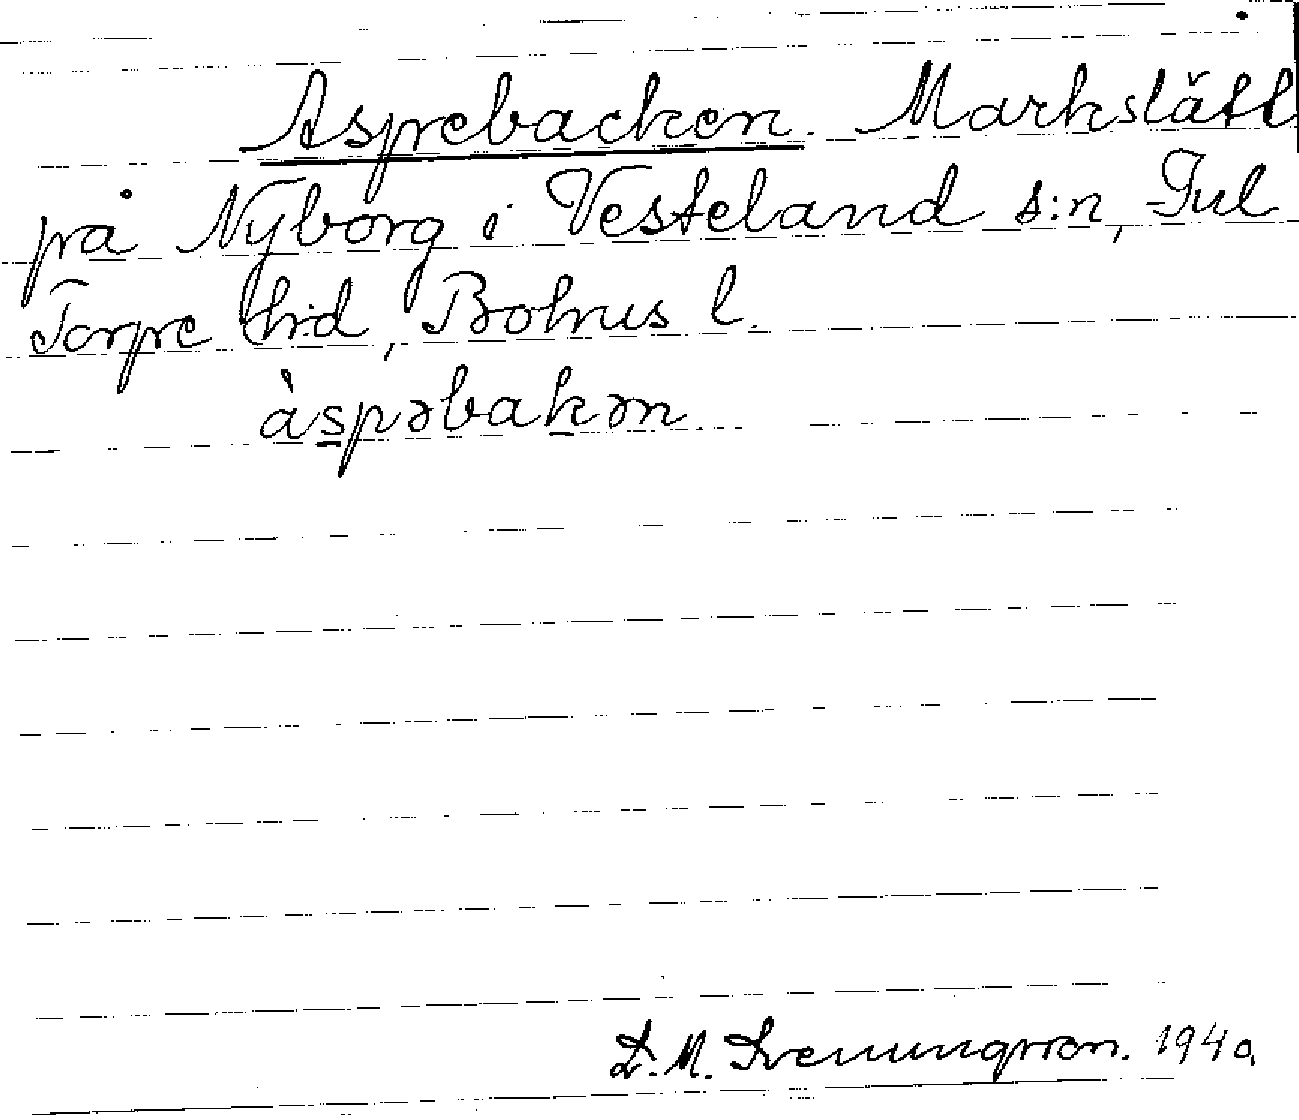 Aspebacken. Markslätt
på Nyborg i Vesteland s:n, Jul
Torpe hrd, Bohus l.
àspəbakən
S. M. Svenungsson. 1940.